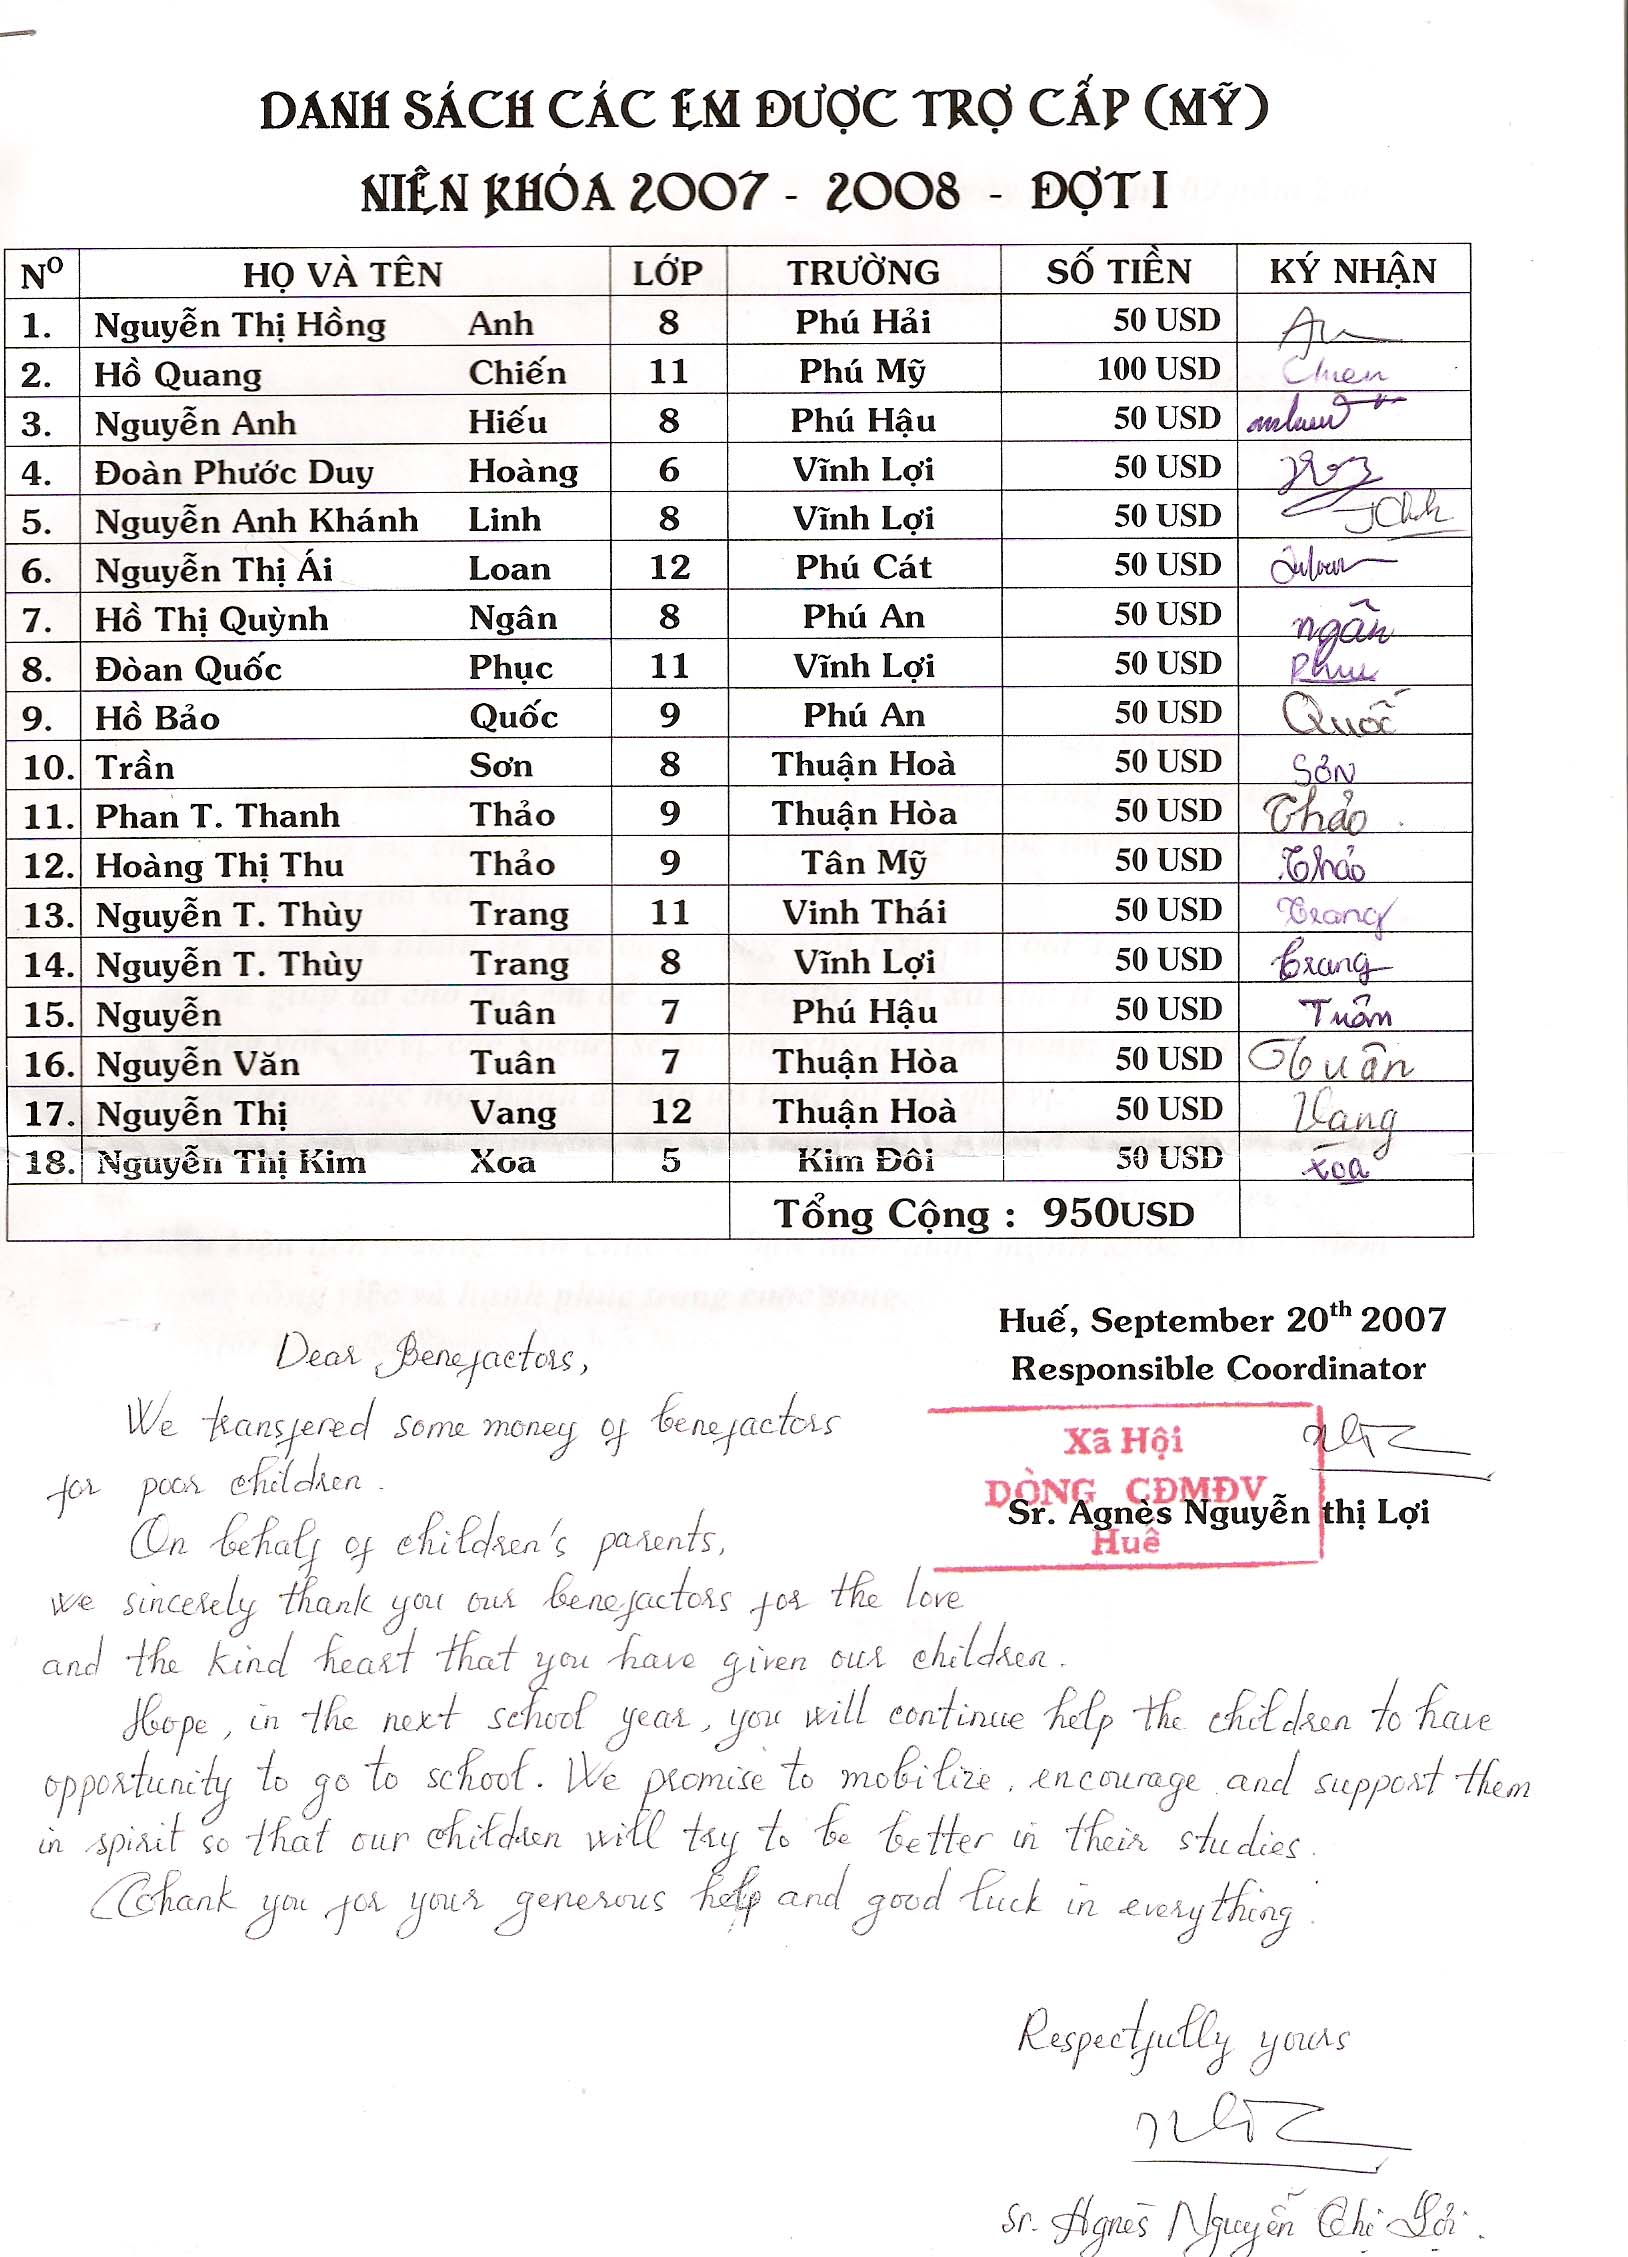 DANH SÁCH CÁC EM ĐƯỢC TRỢ CẤP (MỸ)
NIÊN KHÓA 2007 - 2008 - ĐỢT I
Nº HỌ VÀ TÊN LỚP TRƯỜNG SỐ TIỀN KÝ NHẬN
1. Nguyễn Thị Hồng Anh 8 Phú Hải 50 USD
2. Hồ Quang Chiến 11 Phú Mỹ 100 USD Chien
3. Nguyễn Anh Hiếu 8 Phú Hậu 50 USD
4. Đoàn Phước Duy Hoàng 6 Vĩnh Lợi 50 USD
5. Nguyễn Anh Khánh Linh 8 Vĩnh Lợi 50 USD
6. Nguyễn Thị Ái Loan 12 Phú Cát 50 USD
7. Hồ Thị Quỳnh Ngân 8 Phú An 50 USD ngân
8. Đòan Quốc Phục 11 Vĩnh Lợi 50 USD
9. Hồ Bảo Quốc 9 Phú An 50 USD Quốc
10. Trần Sơn 8 Thuận Hoà 50 USD Sơn
11. Phan T. Thanh Thảo 9 Thuận Hòa 50 USD Thảo
12. Hoàng Thị Thu Thảo 9 Tân Mỹ 50 USD Thảo
13. Nguyễn T. Thùy Trang 11 Vinh Thái 50 USD Trang
14. Nguyễn T. Thùy Trang 8 Vĩnh Lợi 50 USD Trang
15. Nguyễn Tuân 7 Phú Hậu 50 USD Tuân
16. Nguyễn Văn Tuân 7 Thuận Hòa 50 USD Tuân
17. Nguyễn Thị Vang 12 Thuận Hoà 50 USD Vang
18. Nguyễn Thị Kim Xoa 5 Kim Đôi 50 USD Xoa
Tổng Cộng : 950USD
Huế, September 20th 2007
Responsible Coordinator
Xã Hội
DÒNG CĐMĐV
Huế
Sr. Agnès Nguyễn thị Lợi
Dear Benefactors,
We transfered some money of benefactors
for poor children.
On behalf of children's parents,
we sincerely thank you our benefactors for the love
and the kind heart that you have given our children.
Hope, in the next school year, you will continue help the children to have
opportunity to go to school. We promise to mobilize, encourage and support them
in spirit so that our children will try to be better in their studies.
Thank you for your generous help and good luck in everything.
Respectfully yours
Sr. Agnès Nguyễn Thị Lợi.